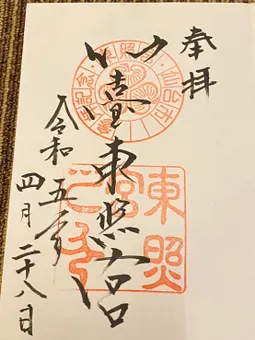 奉拝
仙臺東照宮
令和五年
四月二十八日
東照
宮
之印